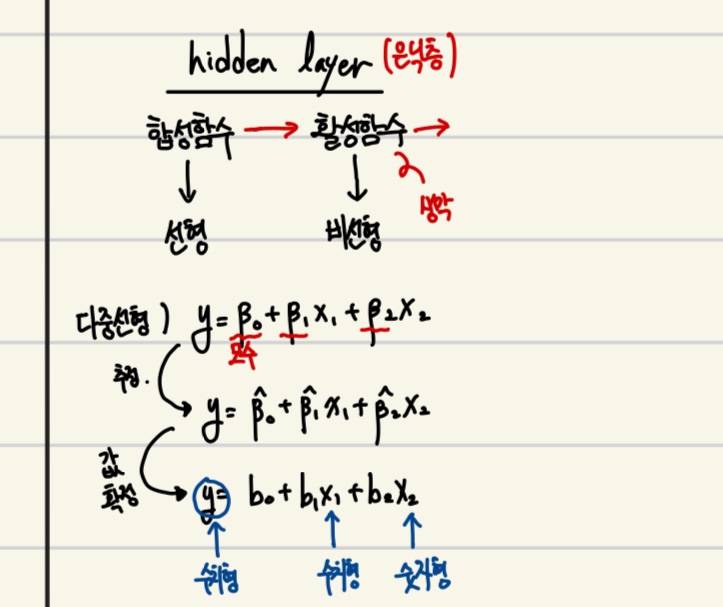 hidden layer (은닉층)
합성함수 → 활성함수 →
생략
선형 비선형
다중선형) y = β₀ + β₁x₁ + β₂x₂
모수
추정.
y = β̂₀ + β̂₁x₁ + β̂₂x₂
값
확정
y = b₀ + b₁x₁ + b₂x₂
수치형 수치형 숫자형